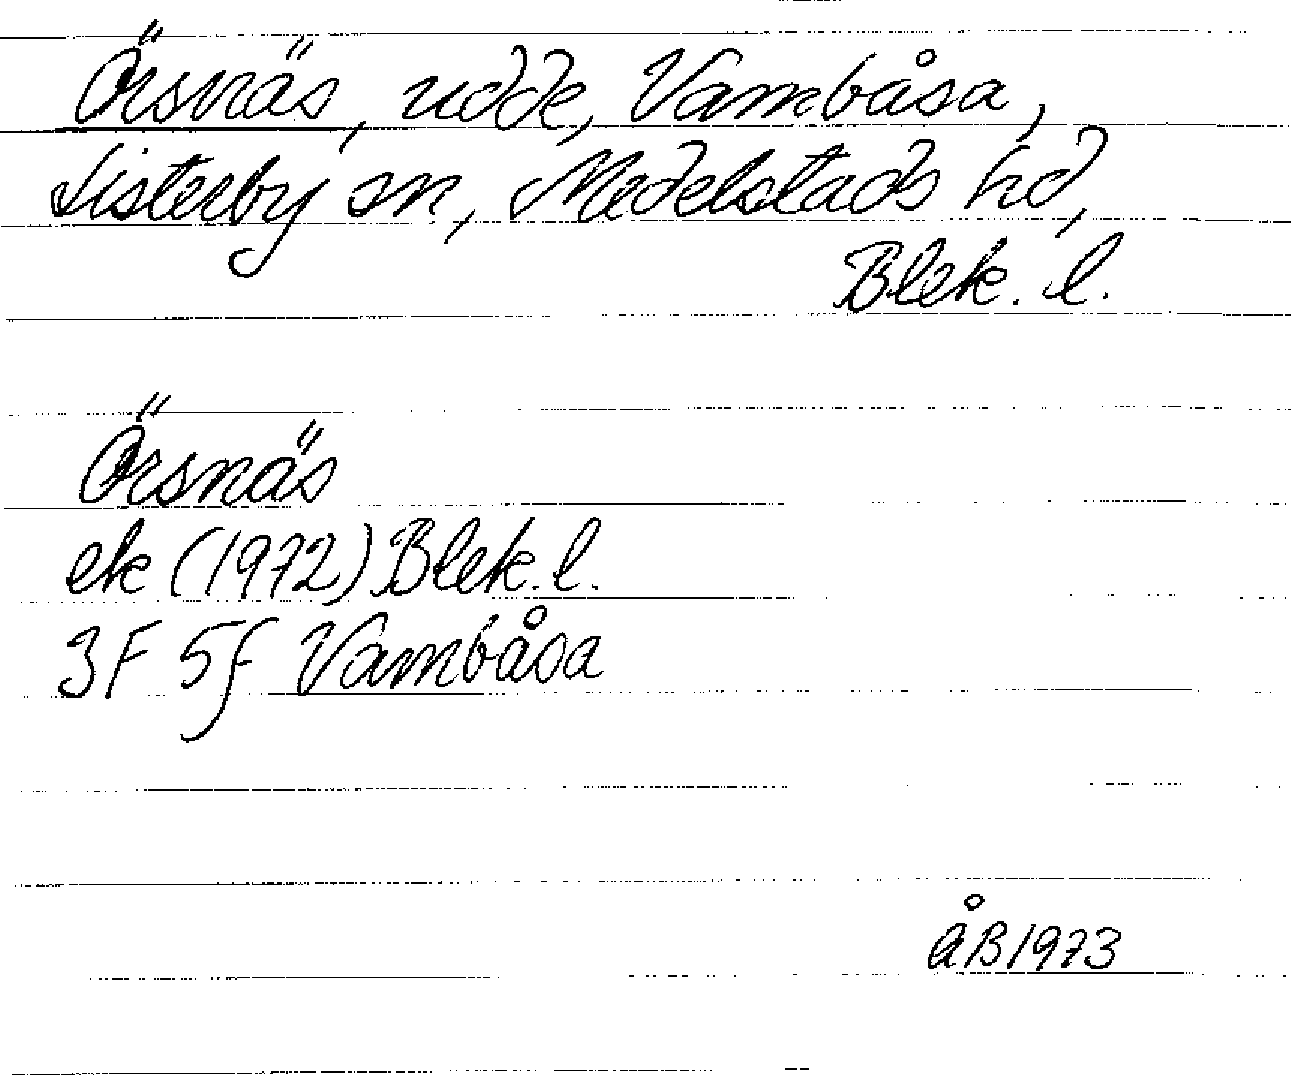 Örsnäs, udde, Vambåsa,
Listerby sn, Medelstads hd,
Blek. l.
Örsnäs
ek (1972) Blek. l.
3F 5f Vambåsa
ÅB 1973